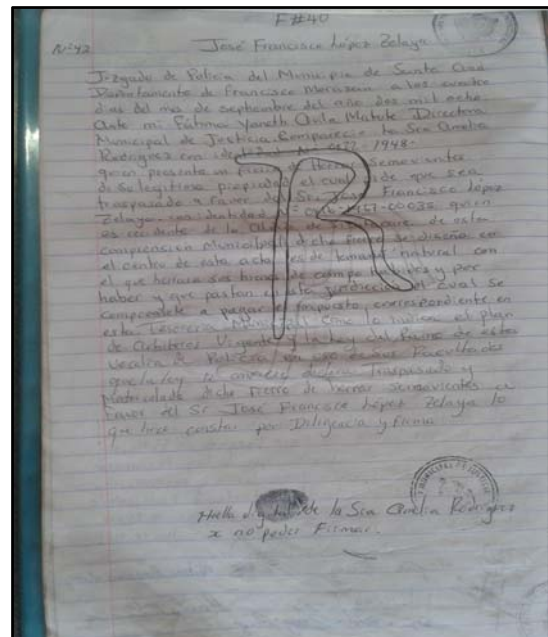 F#40
Nº42
José Francisco López Zelaya
Juzgado de Policia del Municipio de Santa Ana
Departamento de Francisco Morazán a los
dias del mes de septiembre del año dos mil ocho
Ante mi Fátima Yaneth Avila Matute Directora
Municipal de Justicia Comparecio la Sra Amelia
Rodriguez con identidad Nº -1948-
quien presente un fierro de Herrar semovientes
de su legitima propiedad el cual pide que sea
traspasado a favor del Sr. José Francisco López
Zelaya con identidad -1967-00035 quien
es residente de la Aldea de de esta
comprension Municipal dicho fierro se diseña en
el centro de esta acta es de tamaño natural con
el que herrara sus bienes de campo habidos y por
haber y que pastan en esta jurisdiccion el cual se
compromete a pagar el impuesto correspondiente en
esta Tesoreria Municipal como lo indica el plan
de Arbitrios Vigente y la ley del Ramo de estas
facultades
Traspasado y
Matriculado dicho fierro de herrar semovientes a
favor del Sr José Francisco López Zelaya lo
que hace constar por Diligencia y firma
Huella digital de la Sra Amelia Rodriguez
x no poder Firmar.